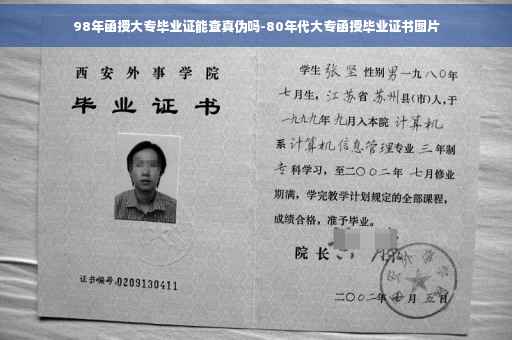 98年函授大专毕业证能查真伪吗-80年代大专函授毕业证书图片
西安外事学院
毕业证书
证书编号:0209130411
学生 张坚 性别 男 一九八〇年
七月生，江苏省 苏州 县(市)人,于
一九九九年 九月入本院 计算机
系 计算机信息管理专业 三 年制
专 科学习，至二〇〇二年 七月修业
期满，学完教学计划规定的全部课程，
成绩合格，准予毕业。
院长
二〇〇二年 七 月 五 日